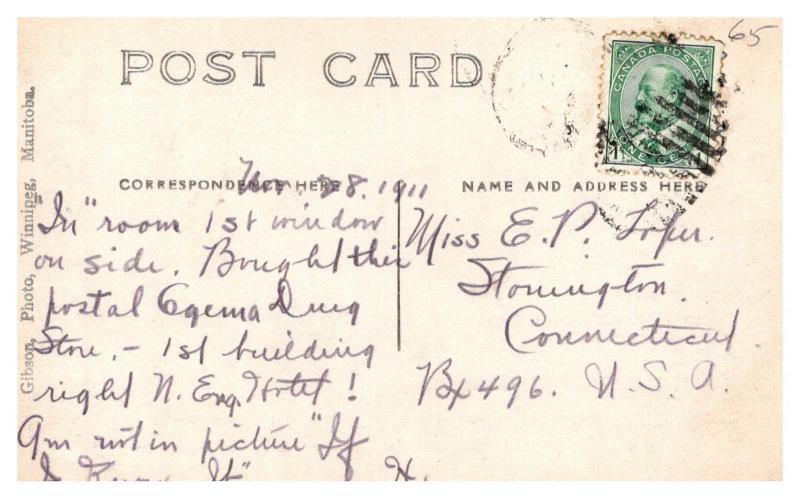 65
POST CARD
CANADA POSTAGE
ONE CENT
Gibson, Photo, Winnipeg, Manitoba.
CORRESPONDENCE HERE
28. 1911
"In" room 1st window
on side. Bought this
postal Ogema Drug
Store, - 1st building
right N. Eng. Hotel!
Am not in picture "If
I Know It" H.
NAME AND ADDRESS HERE
Miss E. P. Loper.
Stonington.
Connecticut.
Bx 496. U. S. A.